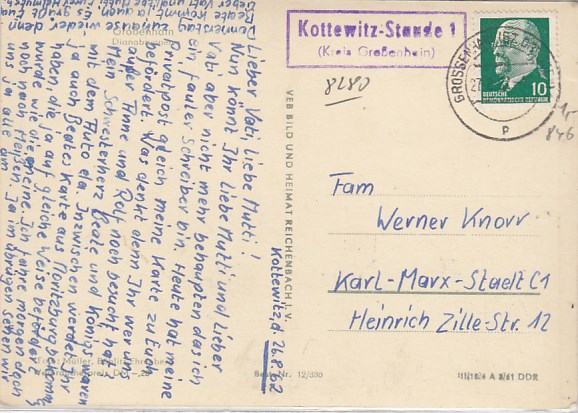 Großenhain
Diana
Kottewitz, d. 26.8.62
Lieber Vati, liebe Mutti!
Nun könnt Ihr liebe Mutti und lieber
Vati aber nicht mehr behaupten das ich
ein fauler Schreiber bin. Heute hat meine
Privatpost gleich meine Karte zu Euch
befördert. Was denkt denn Ihr wer uns
Tinne und Rolf noch besucht hat.
Mein Schwesterherz Beate und König waren
mit dem Auto da. Inzwischen werdet Ihr
ja auch Beates Karte aus Moritzburg bekommen
haben, die ja auf gleiche Weise befördert
wurde wie die meine. Ich fahre morgen
noch nach Meißen.
Ja im übrigen sehen wir
uns ja alle am
Donnerstag
wieder denn
VEB BILD UND HEIMAT REICHENBACH I. V.
Best.-Nr. 12/330
A 3/61 DDR
Kottewitz-Staude 1
(Kreis Großenhain)
8280
GROSSENHAIN
DEUTSCHE
DEMOKRATISCHE REPUBLIK
10
p
1,-
846
Fam
Werner Knorr
Karl-Marx-Stadt C1
Heinrich Zille-Str. 12